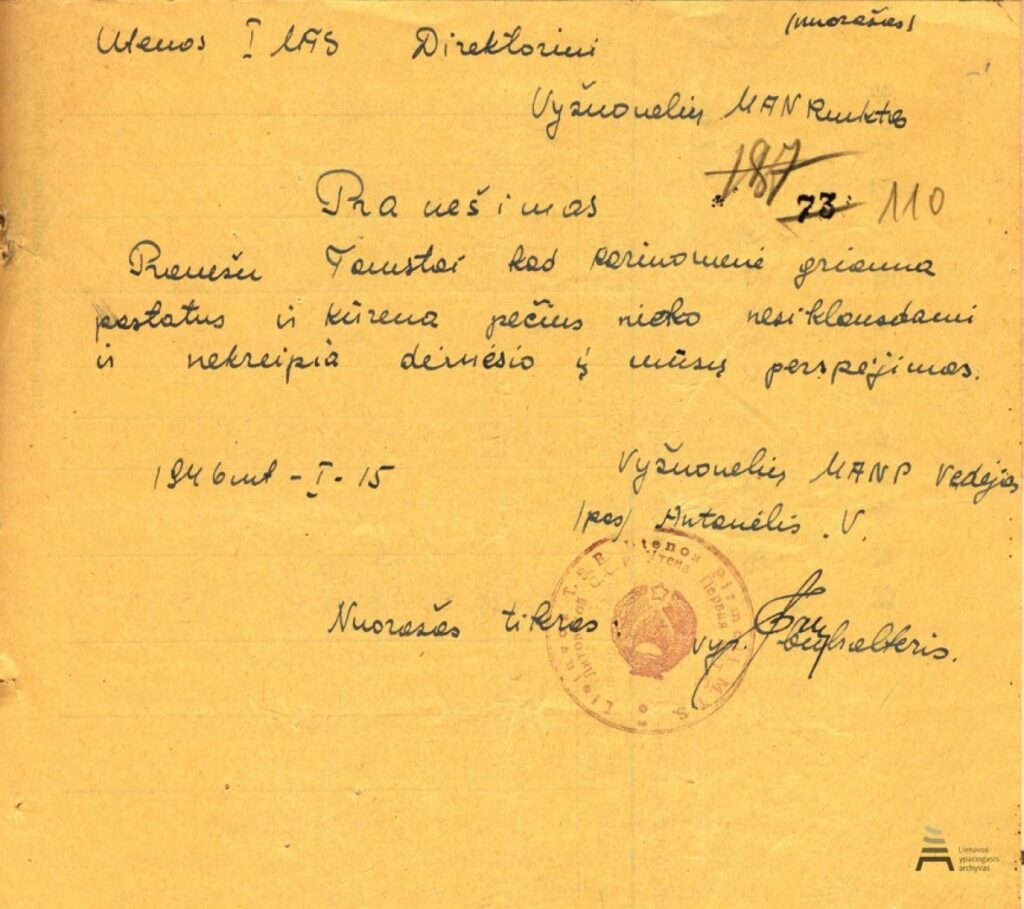 (nuorašas)
Utenos I MTS Direktoriui
Vyžuonėlių MAN Punktas
187
73 110
Pranešimas
Pranešu Tamstai kad karinomenė griauna
pastatus ir kūrena pečius nieko nesiklausdami
ir nekreipia dėmėsio į mūsų perspėjimas.
1946 mt - I - 15
Vyžuonelių MANP Vedėjas
/pas/ Antanėlis .V.
Nuorašas tikras:
vyr. buhalteris.
Lietuvos T.S.R. Utenos Pirmoji M.T.S.
Литовской С.С.Р. Утена Первая
Lietuvos
ypatingasis
archyvas